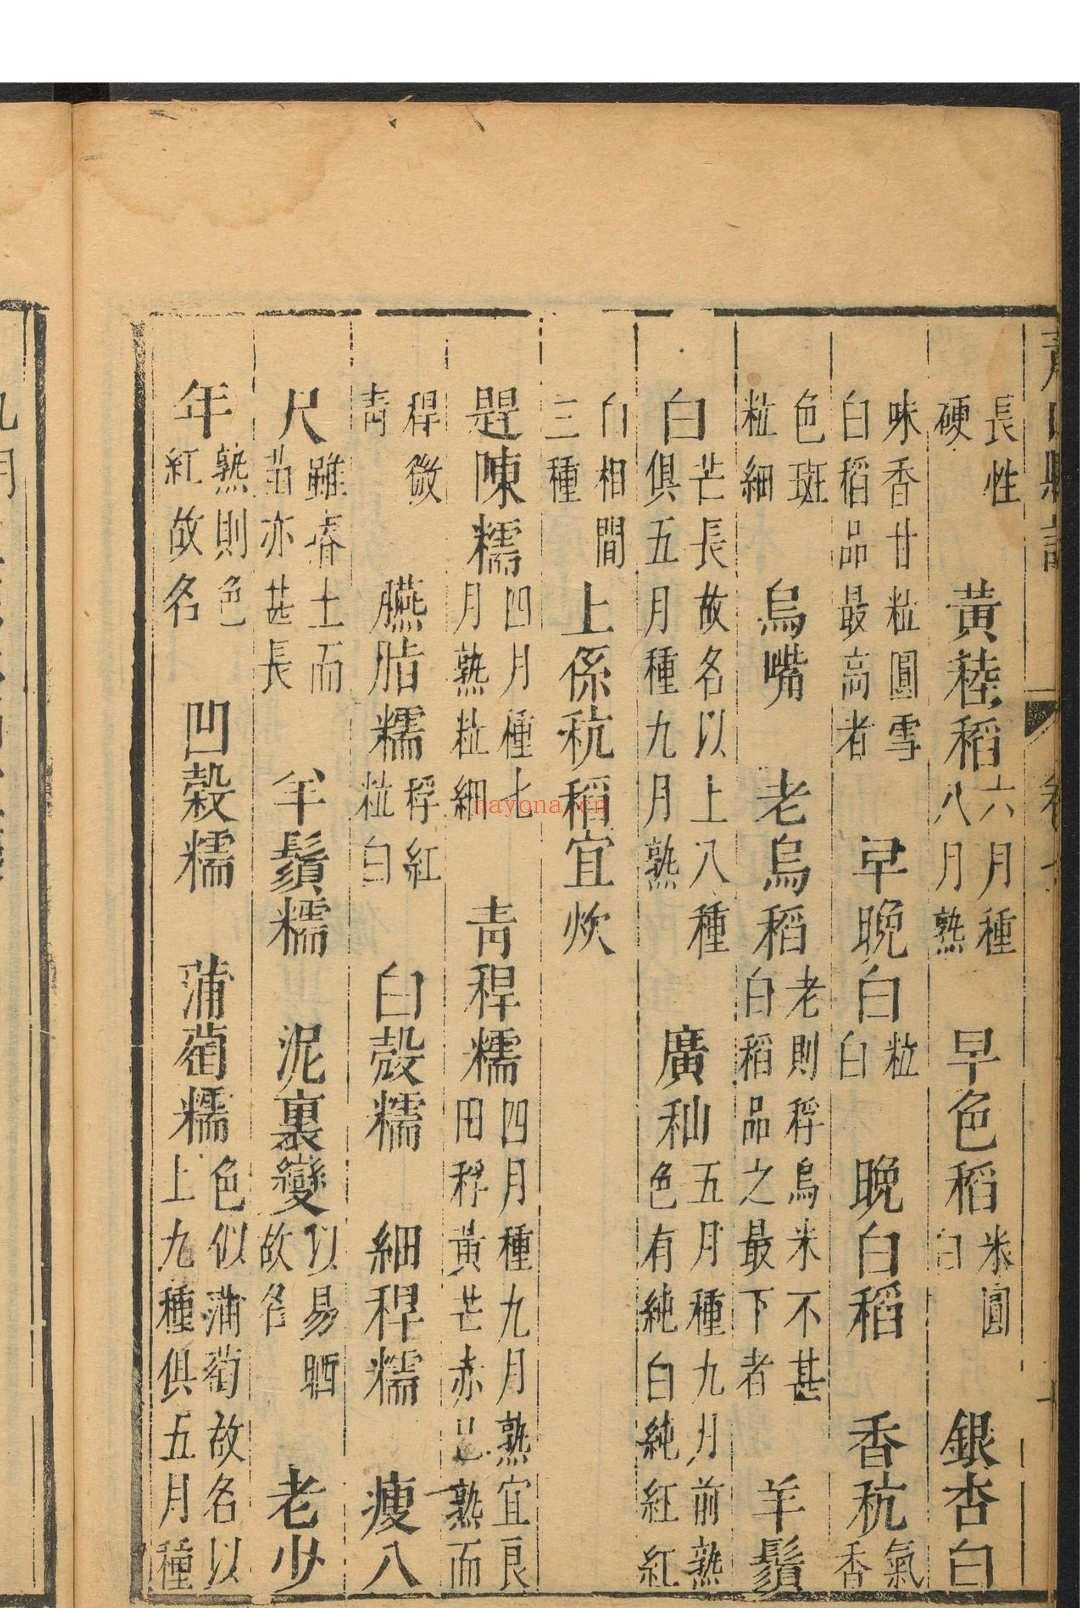 長性硬　黃稑稻六月種八月熟　早色稻米圓白　銀杏白
味香甘粒圓雪白稻品最高者　早晚白粒白　晚白稻　香秔氣香
色斑粒細　烏嘴　老烏稻老則稃烏米不甚白稻品之最下者　羊鬚
白芒長故名以上八種俱五月種九月熟　廣秈五月種九月前熟色有純白純紅紅
白相間三種　上係秔稻宜炊
陳糯四月種七月熟粒細　青稈糯四月種九月熟宜良田稃黃芒赤已熟而
稈微青　臙脂糯稃紅粒白　白殼糯　細稈糯　瘦八
尺雖瘠土而苗亦甚長　羊鬚糯　泥裏變以易晒故名　老少
年熟則色紅故名　凹穀糯　蒲萄糯色似蒲萄故名以上九種俱五月種
nayona.cn